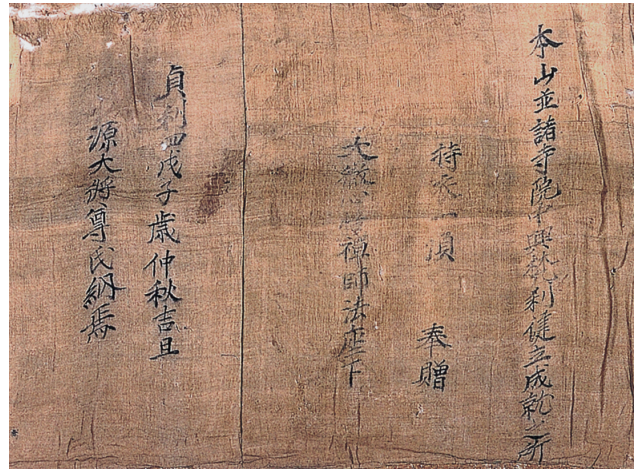 本山並諸寺院中興梵刹健立成就之所
衣一頂　奉贈
大心禅師法座下
貞和四戊子歳仲秋吉旦
源大將尊氏納焉